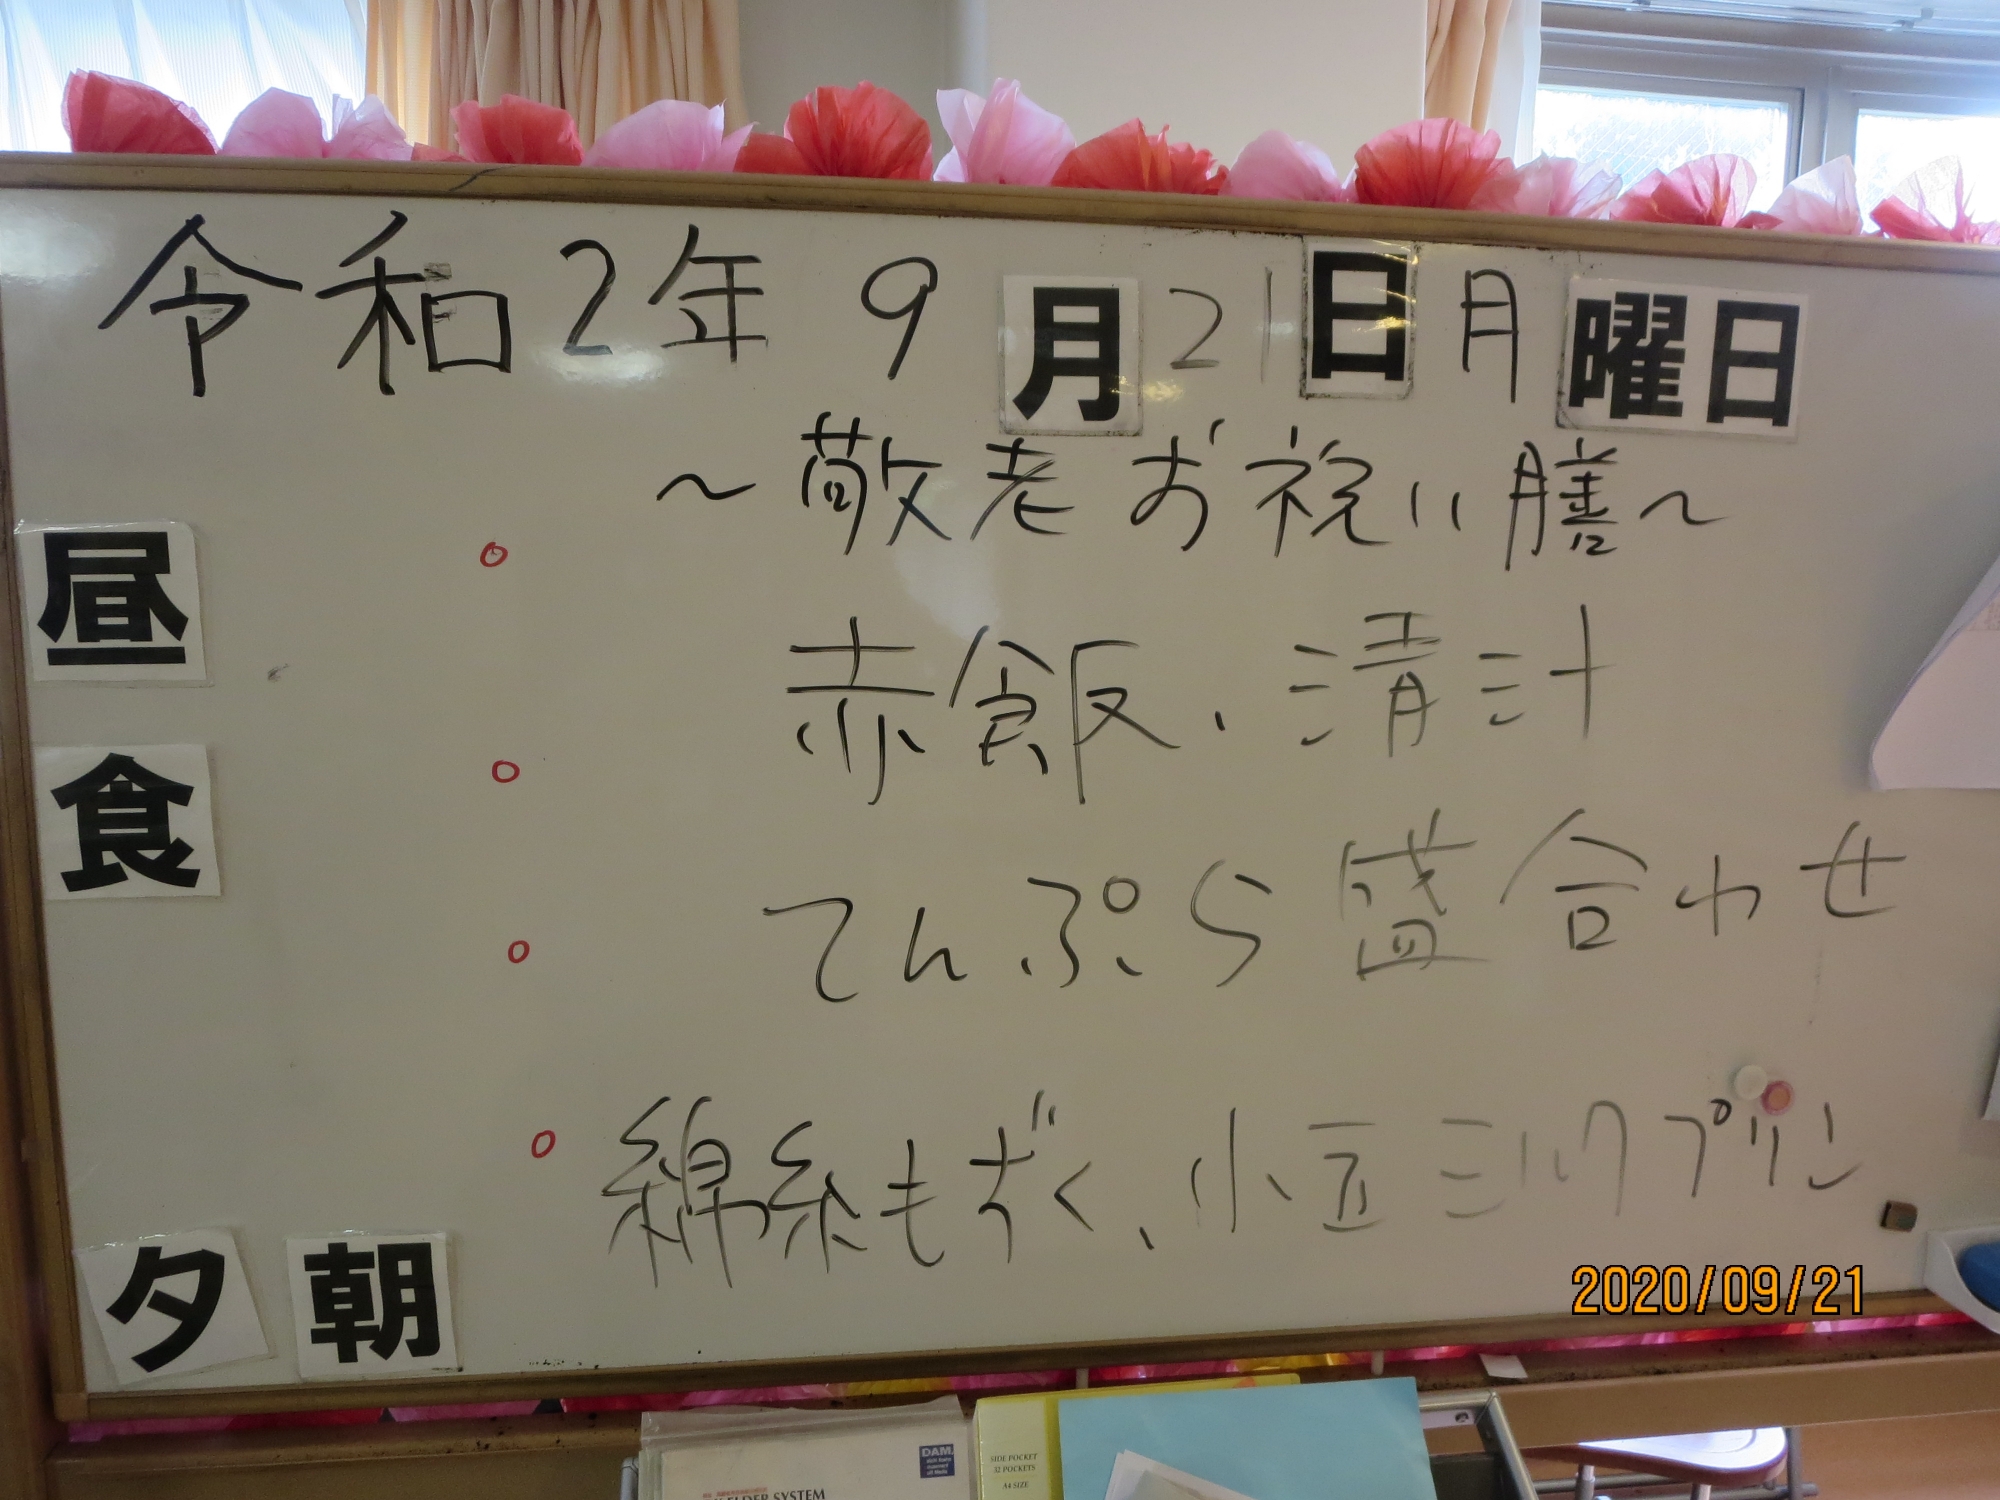 令和2年 9月21日月曜日
～敬老お祝い膳～
昼食
赤飯、清汁
てんぷら盛合わせ
綿糸もずく、小豆ミルクプリン
夕 朝
2020/09/21
DAM
SIDE POCKET
32 POCKETS
A4 SIZE
ELDER SYSTEM